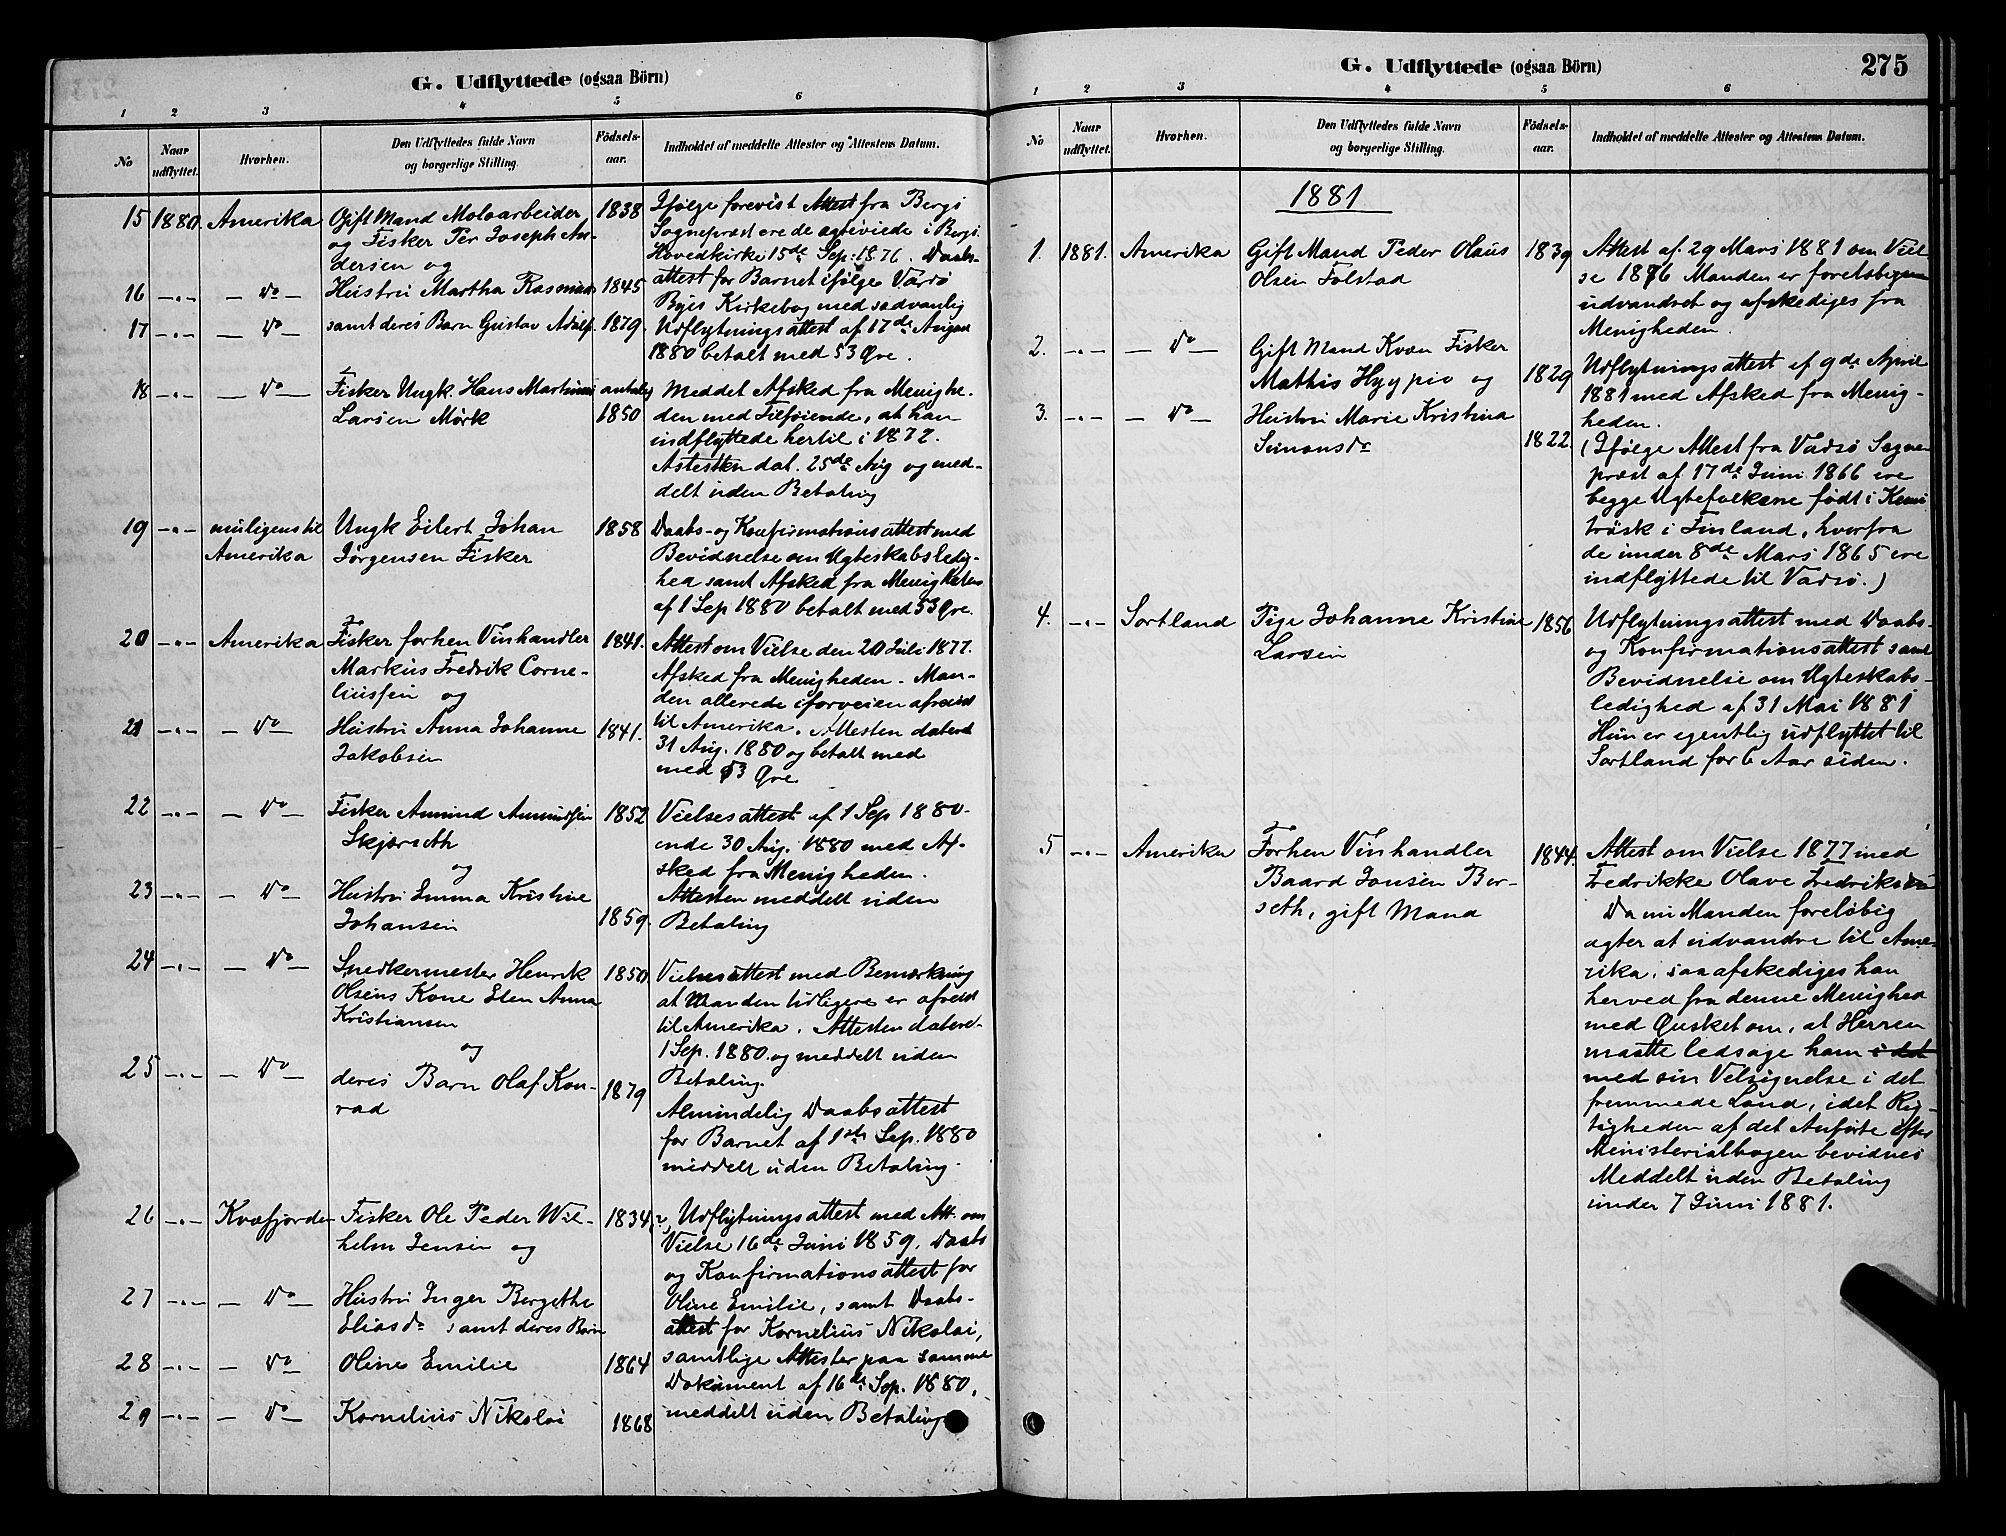 G. Udflyttede (ogsaa Börn)
1 2 3 4 5 6
No Naar udflyttet. Hvorhen. Den Udflyttedes fulde Navn og borgerlige Stilling. Födsels-aar. Indholdet af meddelte Attester og Attestens Datum.
15 1880. Amerika Gift Mand Moloarbeider 1838 Ifølge forevist Attest fra Bergs
og Fisker Per Joseph An- Sognepræst ere de ægteviede i Bergs
dersen og Hovedkirke 15de Sep. 1876. Daabs-
16 -"- - Do - Hustru Martha Rasmus 1845 attest for Barnet ifølge Vardø
Byes Kirkebog med sædvanlig
17 -"- - Do - samt deres Barn Gustav Adolf. 1879. Udflytningsattest af 17de August
1880 betalt med 53 Øre.
18 -"- - Do - Fisker Ungk. Hans Martinus antaly Meddelt Afsked fra Menighe-
Larsen Mørk 1850 den med Tilføiende, at han
indflyttede hertil i 1872.
Attesten dat. 25de Aug og med-
delt uden Betaling
19 -"- muligens til Ungk Eilert Johan 1858 Daabs- og Konfirmationsattest med
Amerika Jørgensen Fisker Bevidnelse om Ugteskabsledig-
hed samt Afsked fra Menigheten
af 1 Sep 1880 betalt med 53 Øre.
20 -"- Amerika Fisker forhen Vinhandler 1841. Attest om Vielse den 20 Juli 1877.
Markus Fredrik Corne- Afsked fra Menigheden. Man-
liussen og den allerede iforveien afreist
21 -"- - Do - Hustru Anna Johanne 1841. til Amerika. Attesten dateret
Jakobsen 31 Aug. 1880 og betalt med
med 53 Øre.
22 -"- - Do - Fisker Amund Amundsen 1852 Vielsesattest af 1 Sep 1880-
Skjærseth ende 30 Aug. 1880 med Af-
og sked fra Menigheden.
23 -"- - Do - Hustru Emma Kristine Attesten meddelt uden
Johansen 1859. Betaling
24 -"- - Do - Snedkermester Henrik 1850. Vielsesattest med Bemærkning
Olsens Kone Elen Anna at Manden tidligere er afreist
Kristiansen til Amerika. Attesten dateret
og 1 Sep. 1880. og meddelt uden
25 -"- - Do - deres Barn Olaf Kon- 1879 Betaling.
rad Almindelig Daabsattest
for Barnet af 1ste Sep. 1880
meddelt uden Betaling.
26 -"- Kvæfjorden Fisker Ole Peder Wil- 1834 Udflytningsattest med Att. om
helm Jensen og Vielse 16de Juni 1859. Daabs
og Konfirmationsattest for
27 -"- - Do - Hustru Inger Bergethe Oline Emilie, samt Daabs-
Eliasdr samt deres Børn attest for Kornelius Nikolai,
28 -"- - Do - Olines Emilie 1864 samtlige Attester paa samme
Dokument af 16de Sep. 1880,
29 -"- - Do - Kornelius Nikolai 1868 meddelt uden Betaling
G. Udflyttede (ogsaa Börn) 275
1 2 3 4 5 6
No Naar udflyttet. Hvorhen. Den Udflyttedes fulde Navn og borgerlige Stilling. Födsels-aar. Indholdet af meddelte Attester og Attestens Datum.
1881
1. 1881. Amerika Gift Mand Peder Olaus 1839 Attest af 29 Mars 1881 om Viel-
Olsen Folstad se 1876 Manden er foreløbigen
udvandret og afskediges fra
Menigheden.
2. -"- - Do - Gift Mand Kvæn Fisker
Mathis Hyypio og 1829 Udflytningsattest af 9de April
3. -"- - Do - Hustru Marie Kristina 1881 med Afsked fra Menig-
Simonsdr 1822. heden.
(Ifølge Attest fra Vadsø Sogne
præst af 17de Juni 1866 ere
begge Ugtefolkene født i Kemi
träsk i Finland, hvorfra
de under 8de Mars 1865 ere
indflyttede til Vadsø.)
4. -"- Sortland Pige Johanne Kristine 1856 Udflytningsattest med Daabs-
Larsen og Konfirmationsattest samt
Bevidnelse om Ugteskabs-
ledighed af 31 Mai 1881
Hun er egentlig udflyttet til
Sortland for 6 Aar siden.
5 -"- Amerika Forhen Vinhandler 1844. Attest om Vielse 1877 med
Baard Jonsen Ber- Fredrikke Olave Fredriksen
seth, gift Mand Da nu Manden foreløbig
agter at udvandre til Ame-
rika, saa afskediges han
herved fra denne Menighed
med Ønsket om, at Herren
maatte ledsage ham i det
med sin Velsignelse i det
fremmede Land, idet Rig-
tigheden af det Anførte efter
Ministerialbogen bevidnes
Meddelt uden Betaling
under 7 Juni 1881.